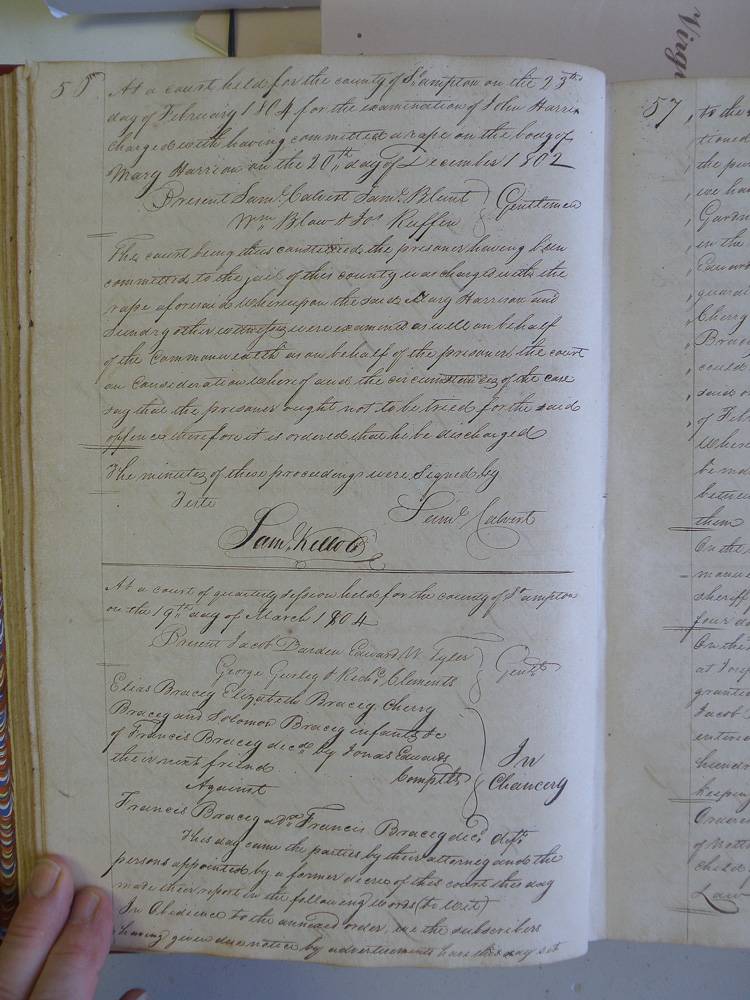 Virg
At a court held for the county of S°ampton on the 23th
day of February 1804 for the examination of John Harris
charged with having committed a rape on the body of
Mary Harrison on the 20th day of December 1802
Present Saml. Calvert Saml. Blunt
Wm. Blow & Jos Ruffin
Gentlemen
This court being thus constituted the prisoner having been
committed to the jail of this county was charged with the
rape aforesaid Whereupon the said Mary Harrison and
sundry other witnesses were examined as well on behalf
of the Commonwealth as on behalf of the prisoner the court
on consideration whereof and the circumstances of the case
say that the prisoner ought not to be tried for the said
offence therefore it is ordered that he be discharged
The minutes of these proceedings were Signed by
Teste
Saml Calvert
Saml. Kello
At a court of quarterly session held for the county of S°ampton
on the 19th day of March 1804
Present Jacob Darden Edward W. Tyler
George Gurley & Richd Clements
Gents
Elias Bracey Elizabeth Bracey Cherry
Bracey and Solomon Bracey infants &c
of Francis Bracey decd by Jonas Edwards
their next friend
Complts
Against
In
Chancery
Francis Bracey adr. Francis Bracey decd. defts
This day came the parties by their attorney and the
persons appointed by a former decree of this court this day
made their report in the following words (to Wit)
In Obedience to the annexed order we the subscribers
having given due notice by advertisements have this day set
57
to the
tioned
the
we ha
Gardn
in the
Edward
guardi
Cherry
Brac
could
said
of Feb
Where
be ma
between
them
On the
sheriff
four da
On the
at
grante
Jacob
entere
hundr
keeping
Ordere
of
child
Law